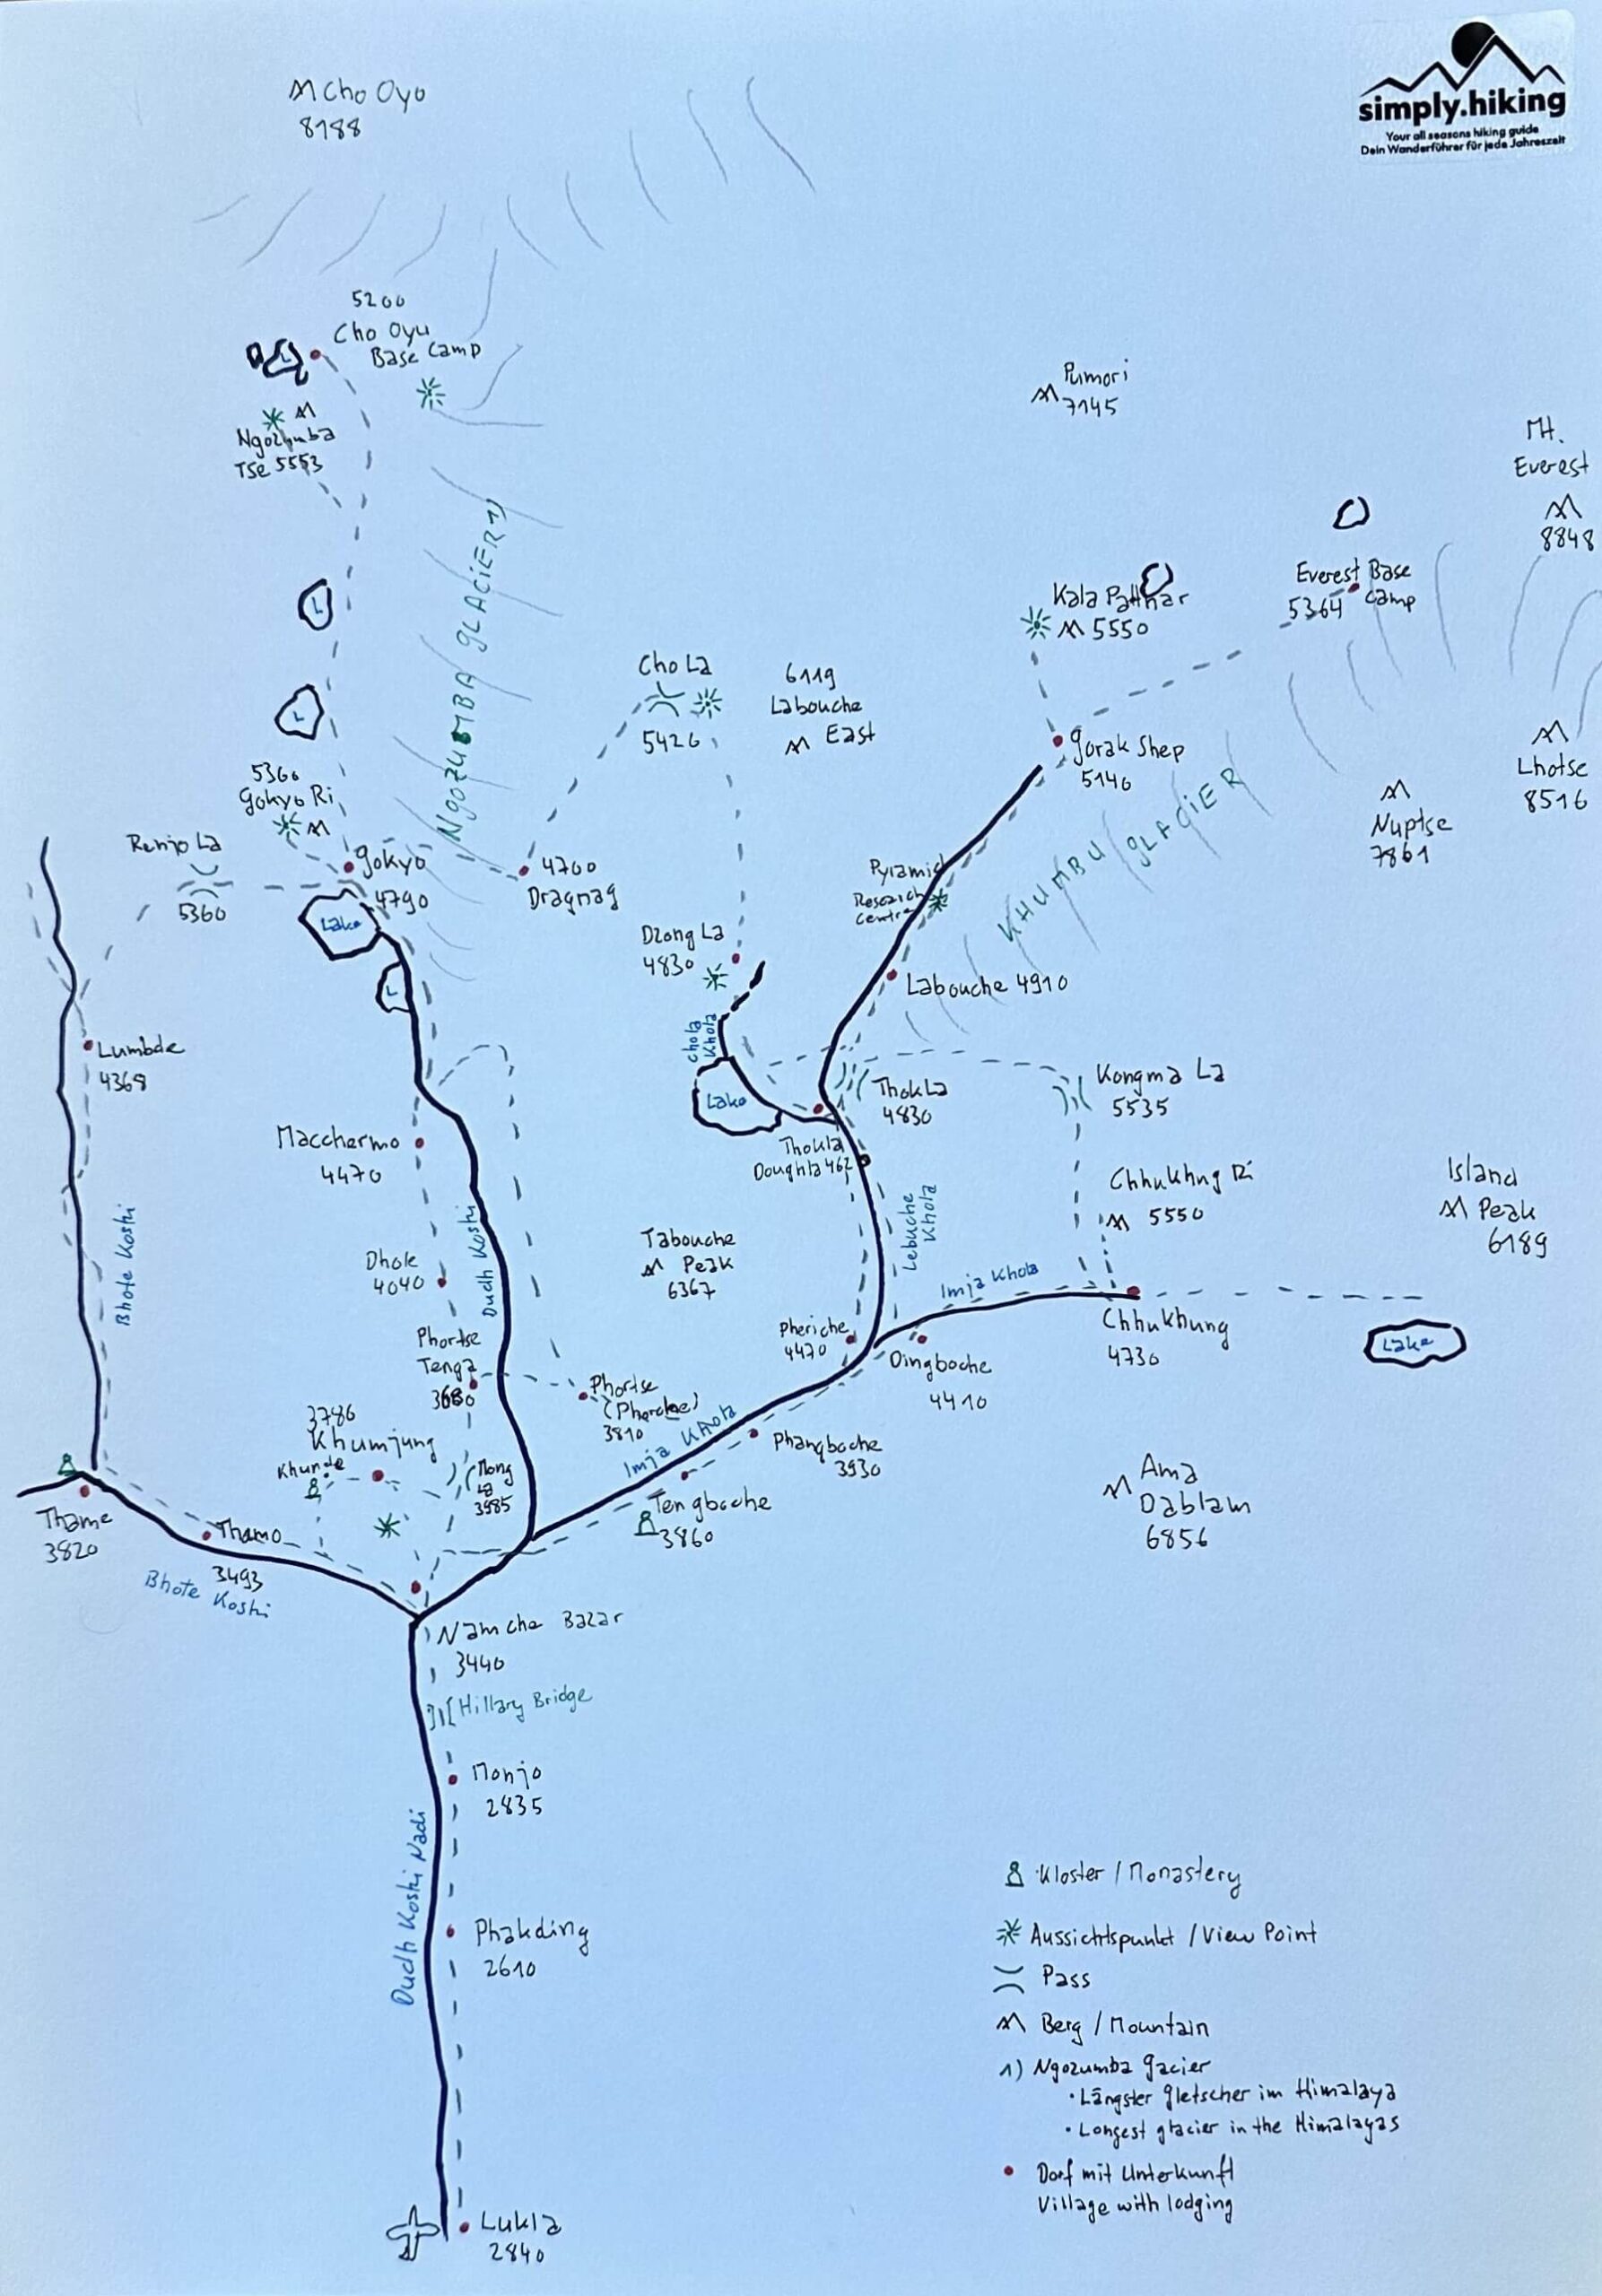 simply.hiking
Your all seasons hiking guide
Dein Wanderführer für jede Jahreszeit
Cho Oyo
8188
5200
Cho Oyu
Base Camp
Ngozumba
Tse 5553
L
L
L
NGOZUMBA GLACiER 1)
Pumori
7145
Mt.
Everest
8848
Everest Base
5364 Camp
Kala Patthar
5550
Cho La
5426
6119
Labouche
East
Gorak Shep
5140
Lhotse
8516
Nuptse
7861
KHUMBU GLACiER
5360
Gokyo Ri
Renjo La
5360
Gokyo
4790
Lake
L
4700
Dragnag
Pyramid
Research
Centre
Dzong La
4830
Labouche 4910
Chola
Khola
Lake
Lumbde
4368
Thok La
4830
Kongma La
5535
Thokla
Doughla 462
Macchermo
4470
Chhukhng Ri
5550
Island
Peak
6189
Bhote Koshi
Dudh Koshi
Lebuche
Khola
Tabouche
Peak
6367
Dhole
4040
Imja Khola
Chhukhung
4730
Lake
Phortse
Tenga
3680
Pheriche
4470
Dingboche
4410
Phortse
3810
Imja Khola
3786
Khumjung
Khunde
Mong
La
3985
Phangboche
3930
Tengboche
3860
Ama
Dablam
6856
Thame
3820
Thamo
3493
Bhote Koshi
Namche Bazar
3440
Hillary Bridge
Monjo
2835
Dudh Koshi Nadi
Phakding
2610
Lukla
2840
Kloster / Monastery
Aussichtspunkt / View Point
Pass
Berg / Mountain
1) Ngozumba Gacier
• Längster Gletscher im Himalaya
• Longest glacier in the Himalayas
Dorf mit Unterkunft
Village with lodging